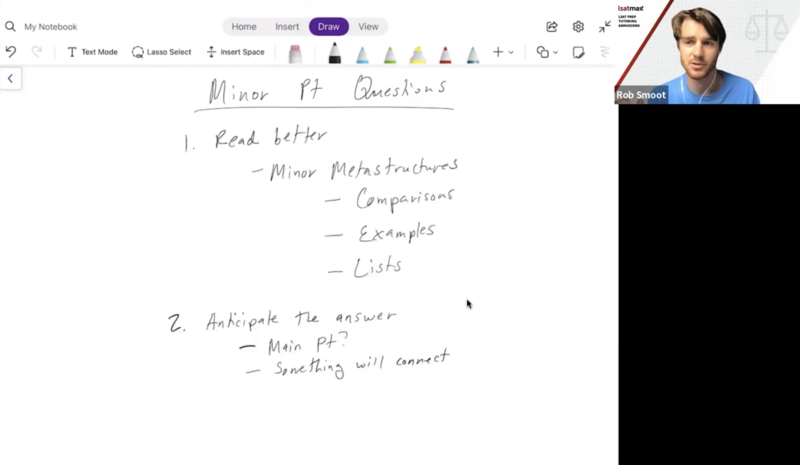 My Notebook
Home Insert Draw View
Text Mode Lasso Select Insert Space
lsatmax
LSAT PREP
TUTORING
ADMISSIONS
Rob Smoot
Minor Pt Questions
1. Read better
- Minor Metastructures
- Comparisons
- Examples
- Lists
2. Anticipate the answer
- Main Pt?
- Something will connect